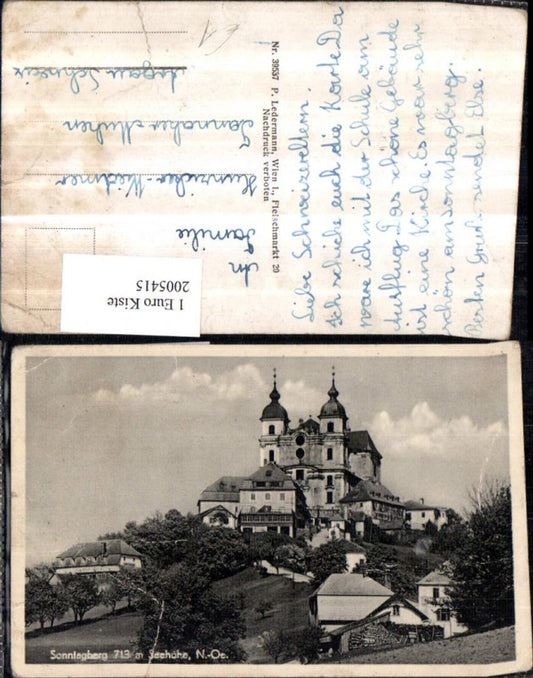 Liebe Schweizereltern.
Ich schicke euch die Karte. Da
war ich mit der Schule am
Ausflug. Das schöne Gebäude
ist eine Kirche. Es war sehr
schön am Sonntagberg.
Besten Gruß sendet Else.
Nr. 39537 P. Ledermann, Wien I., Fleischmarkt 20
Nachdruck verboten
An
Familie
Aargau Schweiz
1 Euro Kiste
2005415
Sonntagberg 713 m Seehöhe, N.-Oe.